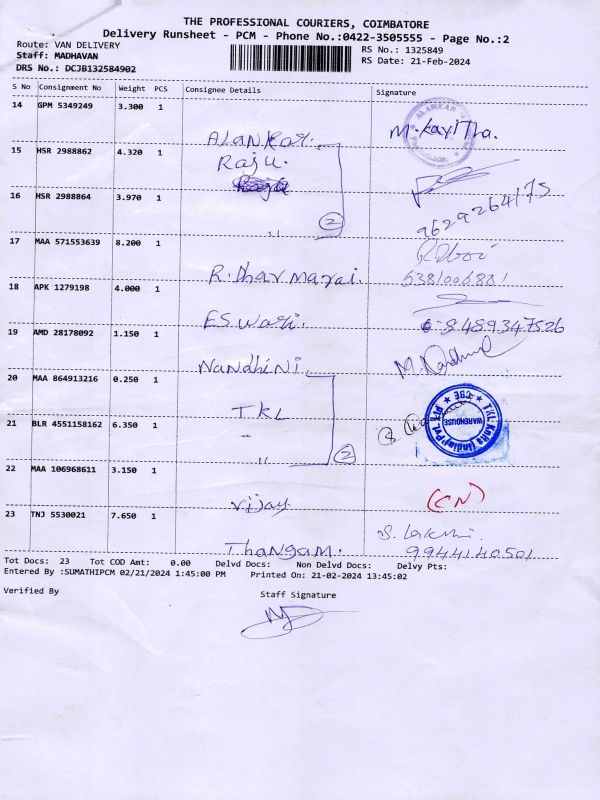 THE PROFESSIONAL COURIERS, COIMBATORE
Delivery Runsheet - PCM - Phone No.:0422-3505555 - Page No.:2
Route: VAN DELIVERY
RS No.: 1325849
Staff: MADHAVAN
RS Date: 21-Feb-2024
DRS No.: DCJB132584902
S No Consignment No Weight PCS Consignee Details Signature
14 GPM 5349249 3.300 1
Alankar. M. Kavitha.
15 HSR 2988862 4.320 1
Raju.
16 HSR 2988864 3.970 1
" 2 9629264175
17 MAA 571553639 8.200 1
R. Dharmaraj. 6381006881
18 APK 1279198 4.000 1
Eswari. 8489347526
19 AMD 28178092 1.150 1
Nandhini.
20 MAA 864913216 0.250 1
TKL
TKL Knits (India) Pvt. Ltd. CBE WAREHOUSE
21 BLR 4551158162 6.350 1
" 2
22 MAA 106968611 3.150 1
Vijay (CN)
23 TNJ 5530021 7.650 1
Thangam. S. Lakshmi.
9944140501
Tot Docs: 23 Tot COD Amt: 0.00 Delvd Docs: Non Delvd Docs: Delvy Pts:
Entered By :SUMATHIPCM 02/21/2024 1:45:00 PM Printed On: 21-02-2024 13:45:02
Verified By Staff Signature